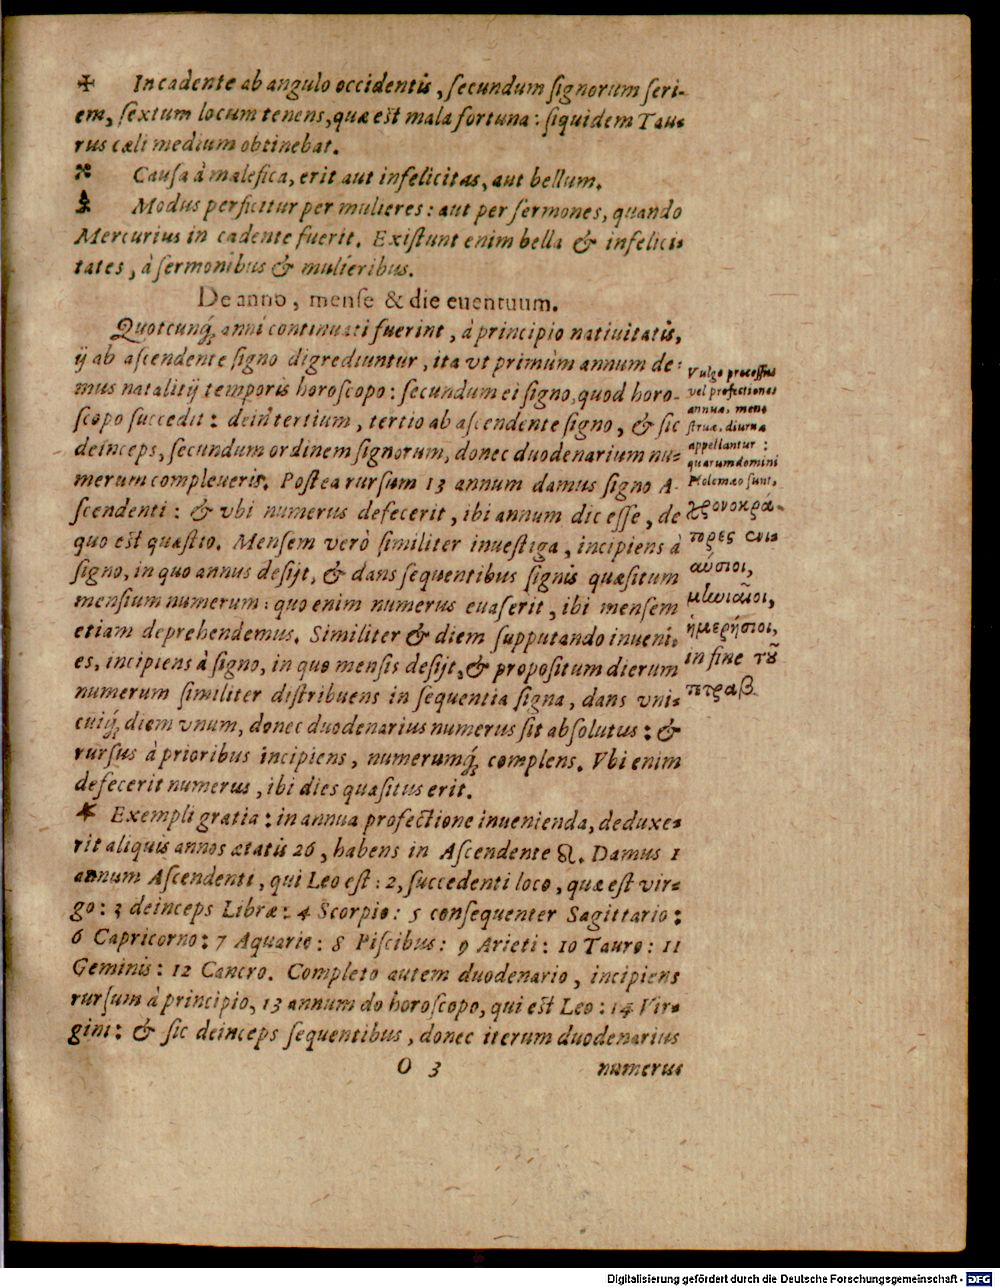 ✠ In cadente ab angulo occidentis, secundum signorum seri-
em, sextum locum tenens, quæ est mala fortuna: siquidem Tau-
rus cæli medium obtinebat.
Causa à malefica, erit aut infelicitas, aut bellum.
Modus perficitur per mulieres: aut per sermones, quando
Mercurius in cadente fuerit. Existunt enim bella & infelici-
tates, à sermonibus & mulieribus.
De anno, mense & die euentuum.
Quotcunq́; anni continuati fuerint, à principio natiuitatis,
ij ab ascendente signo digrediuntur, ita vt primùm annum de-
mus natalitij temporis horoscopo: secundum ei signo, quod horo-
scopo succedit: dein tertium, tertio ab ascendente signo, & sic
deinceps, secundum ordinem signorum, donec duodenarium nu-
merum compleueris. Postea rursum 13 annum damus signo A-
scendenti: & vbi numerus defecerit, ibi annum dic esse, de
quo est quæstio. Mensem verò similiter inuestiga, incipiens à
signo, in quo annus desijt, & dans sequentibus signis quæsitum
mensium numerum: quo enim numerus euaserit, ibi mensem
etiam deprehendemus. Similiter & diem supputando inueni-
es, incipiens à signo, in quo mensis desijt, & propositum dierum
numerum similiter distribuens in sequentia signa, dans vni-
cuiq́; diem vnum, donec duodenarius numerus sit absolutus: &
rursus à prioribus incipiens, numerumq́; complens. Vbi enim
defecerit numerus, ibi dies quæsitus erit.
Vulgo processus
vel profectiones
annuæ, men-
struæ, diurnæ
appellantur:
quarum domini
Ptolemæo sunt,
χρονοκρά-
τορες ἐνι-
αύσιοι,
μηνιαῖοι,
ἡμερήσιοι,
in fine τοῦ
τετραβ.
* Exempli gratia: in annua profectione inuenienda, deduxe-
rit aliquis annos ætatis 26, habens in Ascendente ♌. Damus 1
annum Ascendenti, qui Leo est: 2, succedenti loco, quæ est vir-
go: 3 deinceps Libræ: 4 Scorpio: 5 consequenter Sagittario:
6 Capricorno: 7 Aquario: 8 Piscibus: 9 Arieti: 10 Tauro: 11
Geminis: 12 Cancro. Completo autem duodenario, incipiens
rursum à principio, 13 annum do horoscopo, qui est Leo: 14 Vir-
gini: & sic deinceps sequentibus, donec iterum duodenarius
O 3 numerus
Digitalisierung gefördert durch die Deutsche Forschungsgemeinschaft - DFG